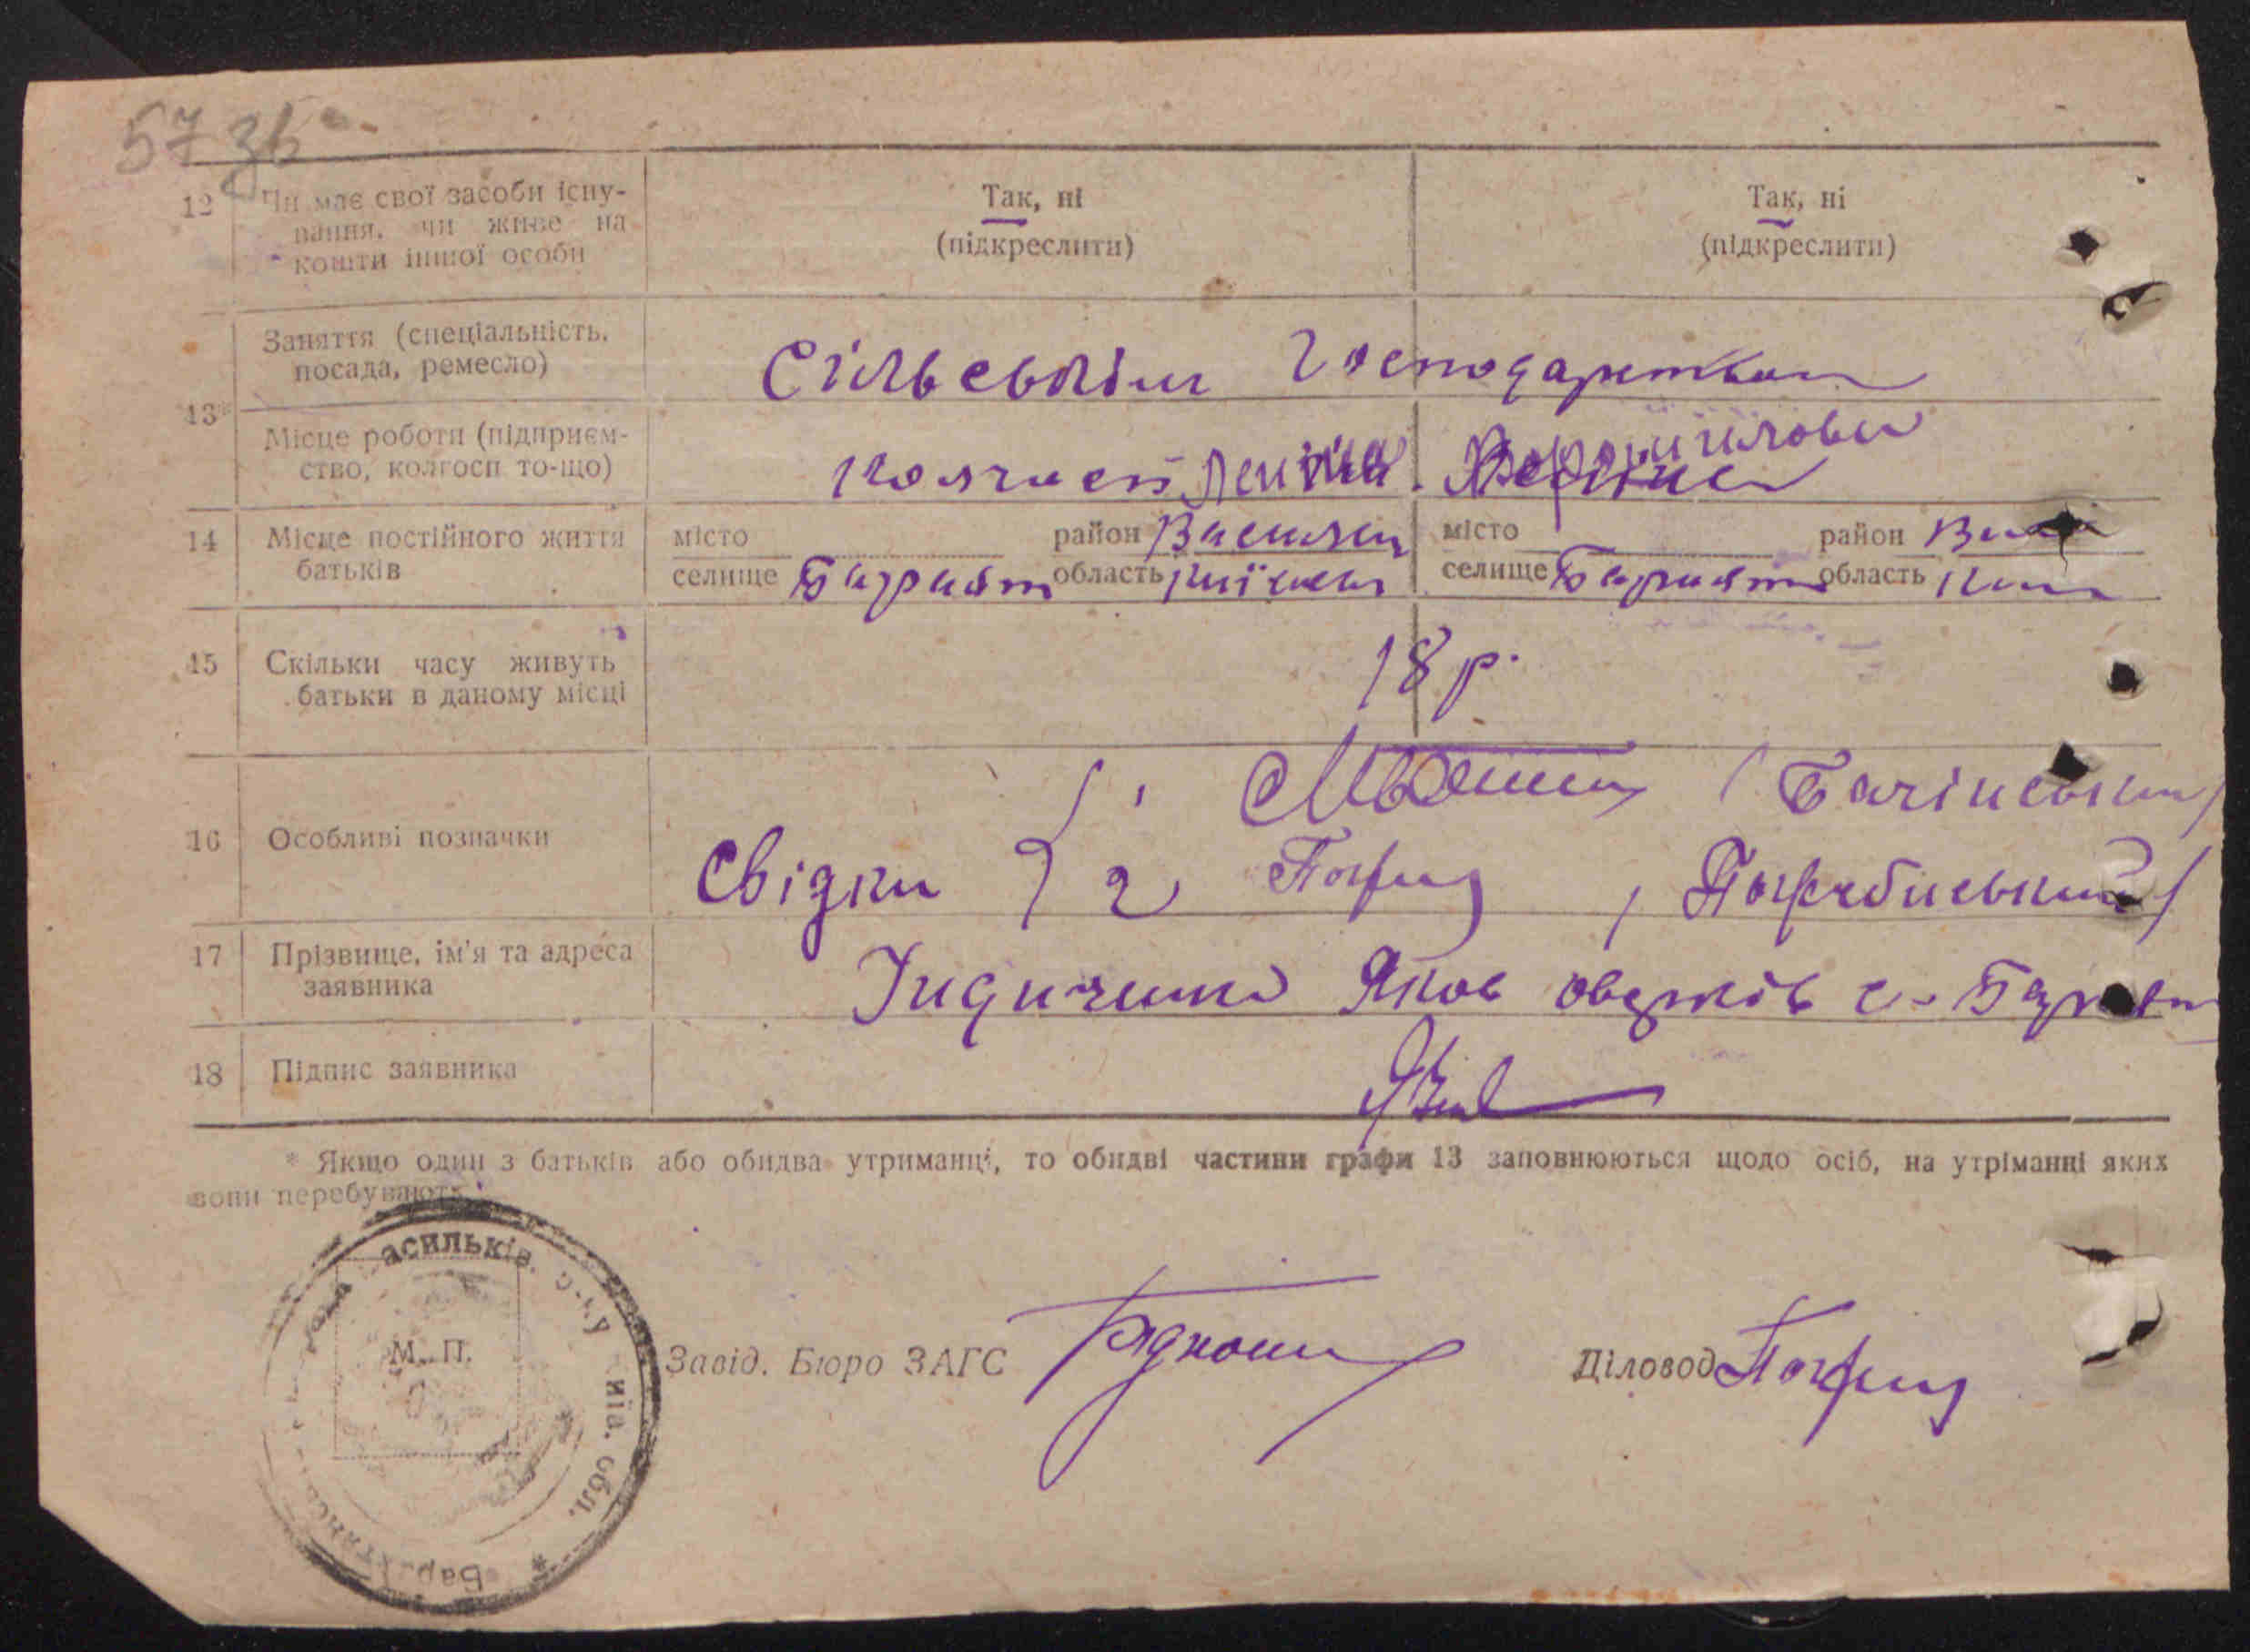 57 зв
12 Чи має свої засоби існу-
вання, чи живе на
кошти іншої особи
Так, ні
(підкреслити)
Так, ні
(підкреслити)
13*
Заняття (спеціальність,
посада, ремесло)
Сільським Господарством
Місце роботи (підприєм-
ство, колгосп то-що)
Колгосп Леніна
Ворошилова
14 Місце постійного життя
батьків
місто район Васильк
селище Бархат область Київськ
місто район Ва
селище Бархат область Ки
15 Скільки часу живуть
батьки в даному місці
18 р.
16 Особливі позначки
Свідки
1
2 Погр
17 Прізвище, ім'я та адреса
заявника
Яков с.
18 Підпис заявника
* Якщо один з батьків або обидва утриманці, то обидві частини графи 13 заповнюються щодо осіб, на утріманні яких
вони перебувають.
асильків. р-ну
Київ. обл.
М. П.
Завід. Бюро ЗАГС
Діловод Погр